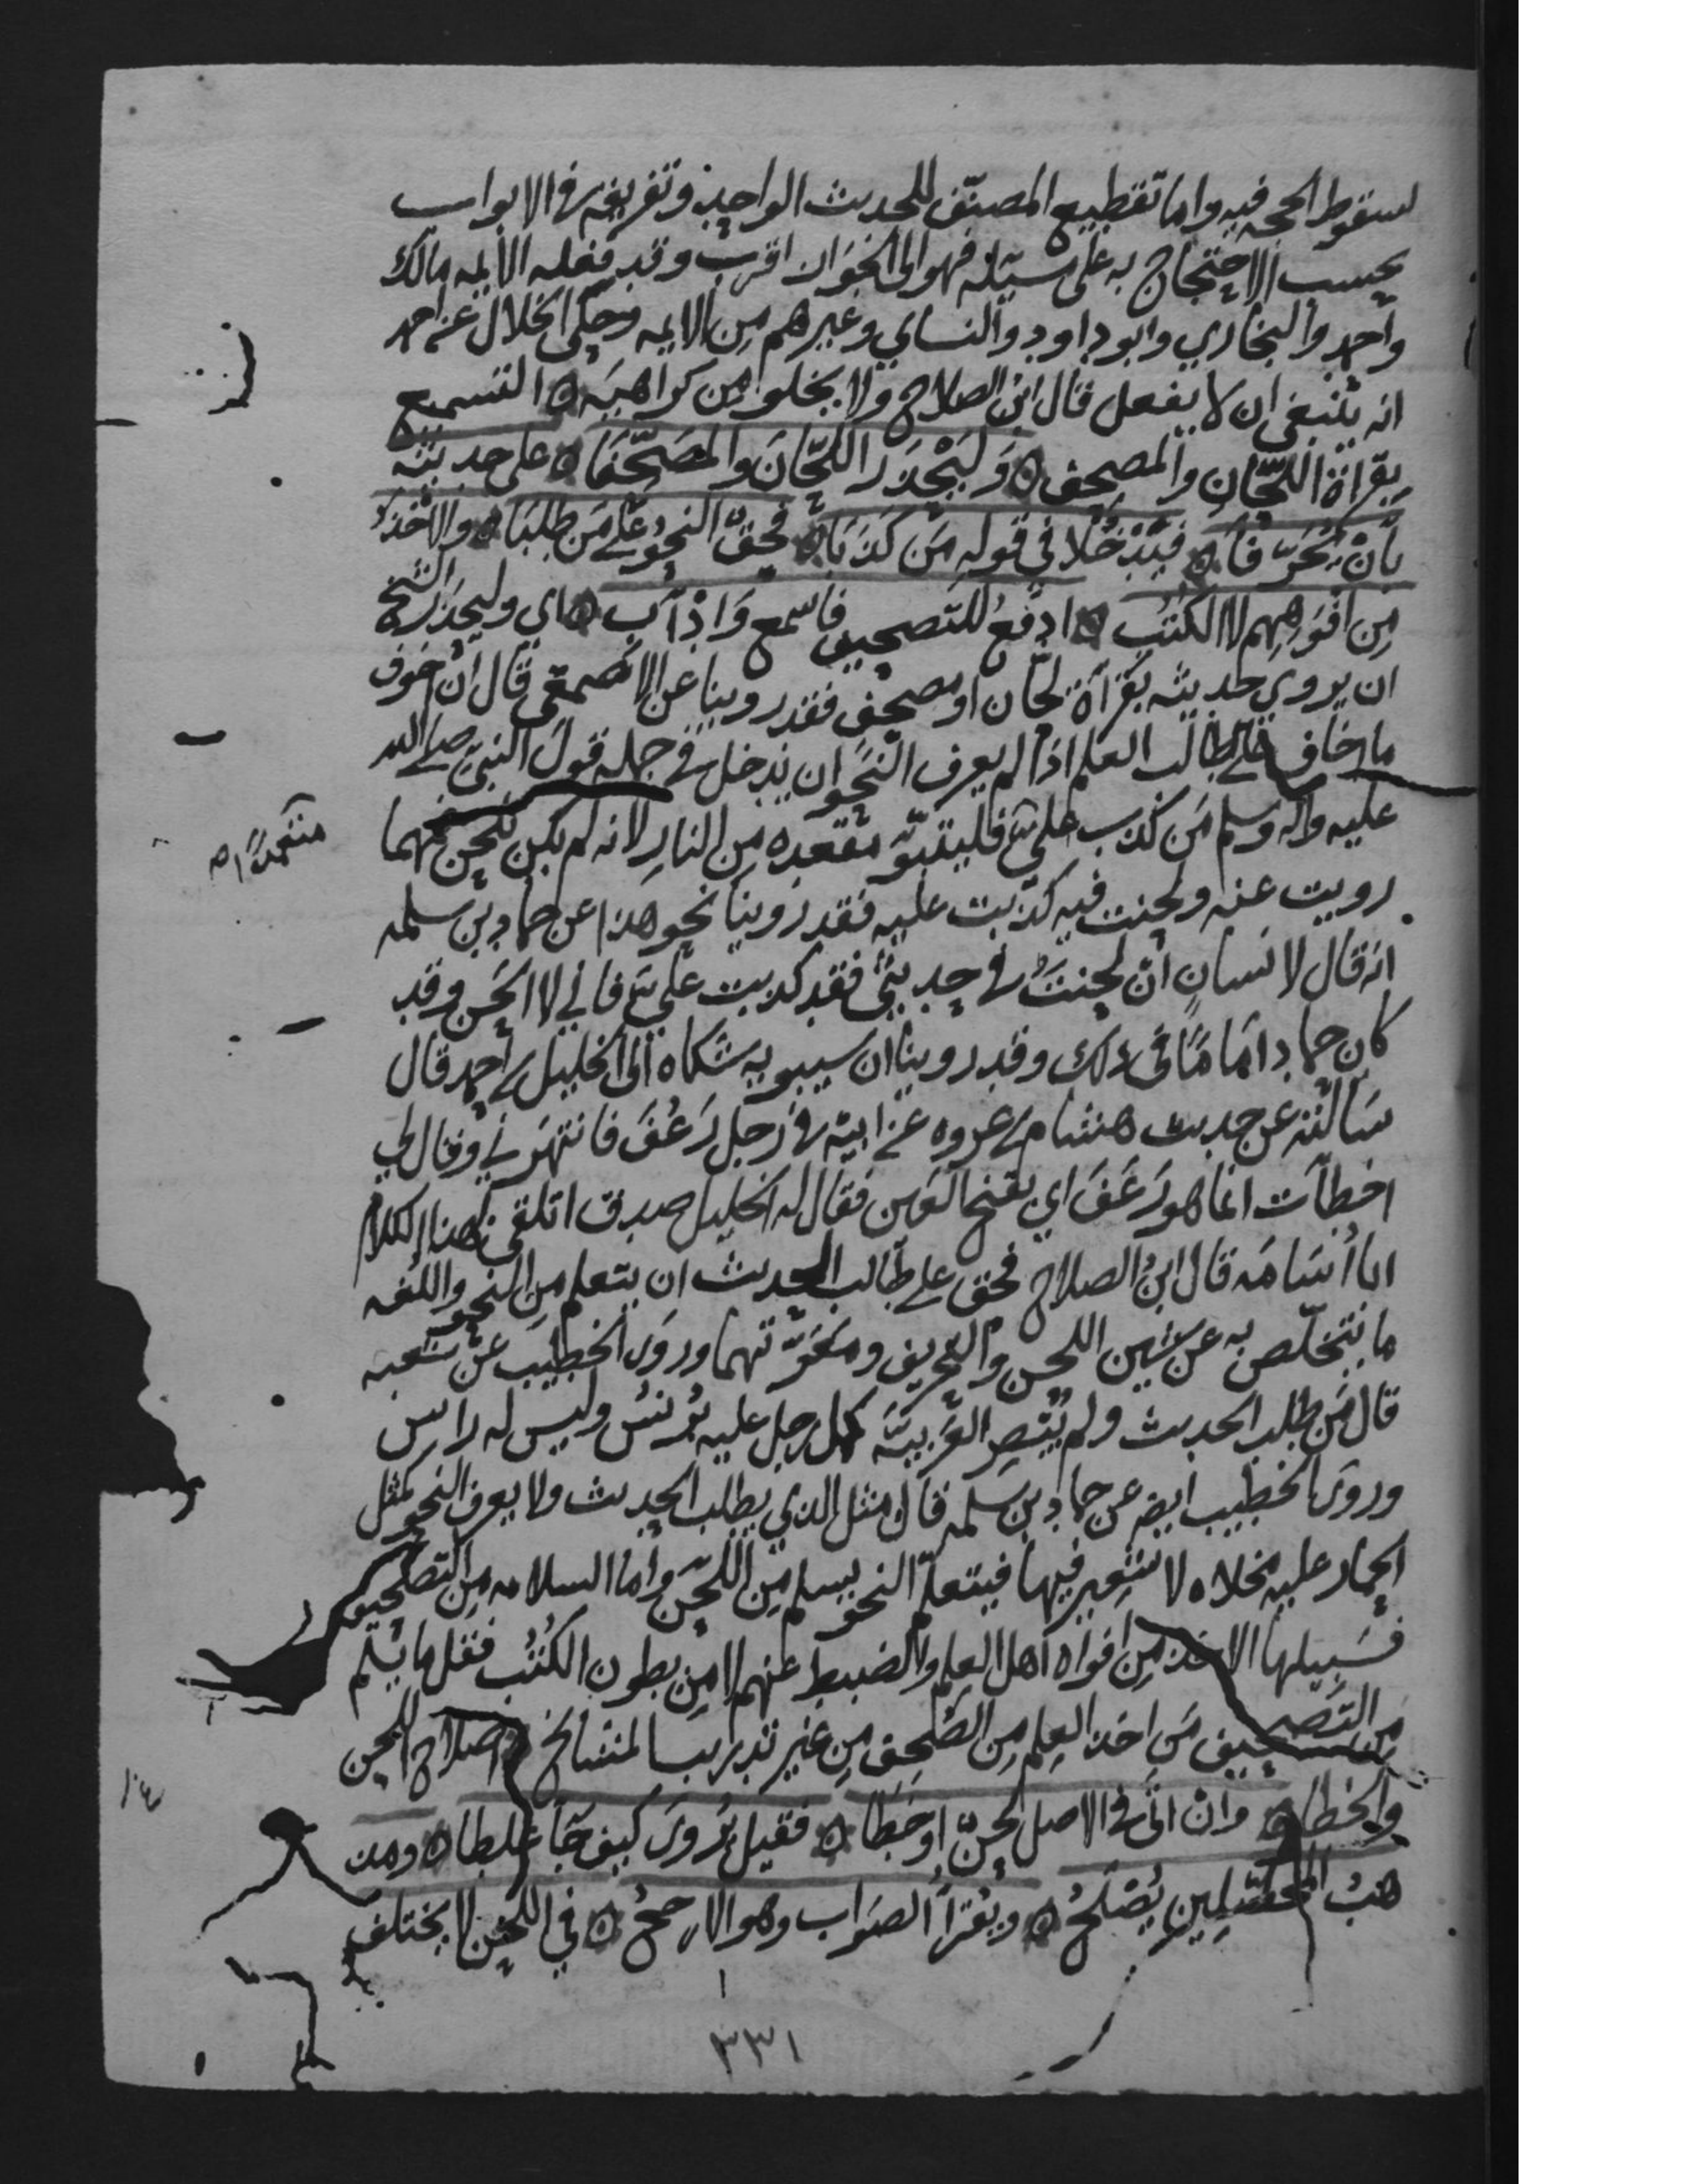 لسقوط الحجه فيه واما تقطيع المصنّف للحديث الواحد وتفريقه في الابواب
بحسب الاحتجاج به على مسيلة فهو الى الجواز اقرب وقد فعله الايمه مالك
واحمد والبخاري وابو داود والنساي وغيرهم من الايمه وحكى الخلال عن احمد
انه ينبغي ان لا يفعل قال ابن الصلاح ولا يخلوا من كراهيه ه التسميع
بقراة اللحّان والمصحف ه وَليَحْذَر اللحّانَ والمُصَحّفا ه على حديثه
بأنْ يُحَرّفا ه فيَدْخُلا في قوله مَن كَذَبَا ه فحقّ النحو على مَن طلبَا ه والاخذ
مِن افوَاهِهم لا الكُتُب ه ادفعُ للتصحيف فاسمع وَاذْأَب ه اي وليحذر الشيخ
ان يروي حديثه بقراة لحّان او مصحف فقد روينا عن الاصمعي قال ان اخوف
ما اخاف على طالب العلم اذا لم يعرف النحو ان يدخل في جمله قول النبي صلى الله
عليه واله وسلم مَن كذب علي فليتبوّ مقعده من النار لانه لم يكن يلحن فمهما
متعمدًا صح
رويت عنه ولحنت فيه كذبت عليه فقد روينا نحو هذا عن حماد بن سلمه
انه قال لانسان ان لحنتَ في حديثي فقد كذبت علي فاني لا الحن وقد
كان حماد امامًا في ذلك وقد روينا ان سيبويه شكاه الى الخليل بن احمد قال
سَالته عن حديث هشام بن عروه عن ابيه في رجل رَعُفَ فانتهرني وقال لي
اخطات انما هو رَعَفَ اي بفتح العين فقال له الخليل صدق اتلقى بهذا الكلام
ابا اُسَامَه قال ابنُ الصلاح فحق على طالب الحديث ان يتعلم من النحو واللغه
ما يتخلّص به عن شين اللحن والتحريف ومعَرّتهما وروَى الخطيب عن شعبه
قال مَن طلب الحديث ولم يُبْصِر العَربيّه كمثل رجل عليه بُرنسُ وليس له راس
وروَى الخطيب ايضا عن حماد بن سلمه قال مثل الذي يطلب الحديث ولا يعرف النحو كمثل
الحمار عليه مخلاه لا شعير فيها فبتعلم النحو يسلم من اللحن واما السلامه من التصحيف
فسَبيلها الاخذ مِن افواه اهل العلم والضبط عنهم لا من بطون الكُتُب فقل ما يسلم
من التصحيف مَن اخذ العلم من الصُحف من غير تدريب المشايخ ه اصلاح اللحن
والخطا ه وانْ اتى في الاصل لحنّ او خَطَا ه فقيل يُروَى كيف جَا غلطا ه ومذ
هبُ المحصّلِين يُصْلحُ ه ويُقرَا الصوَاب وهو الارجحُ ه في اللحن لا يختلف
٣٣١